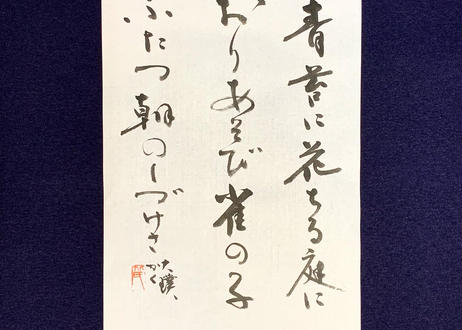 青苔に花ちる庭に
おりあそび雀の子
ふたつ朝のしづけさ
大璞かく